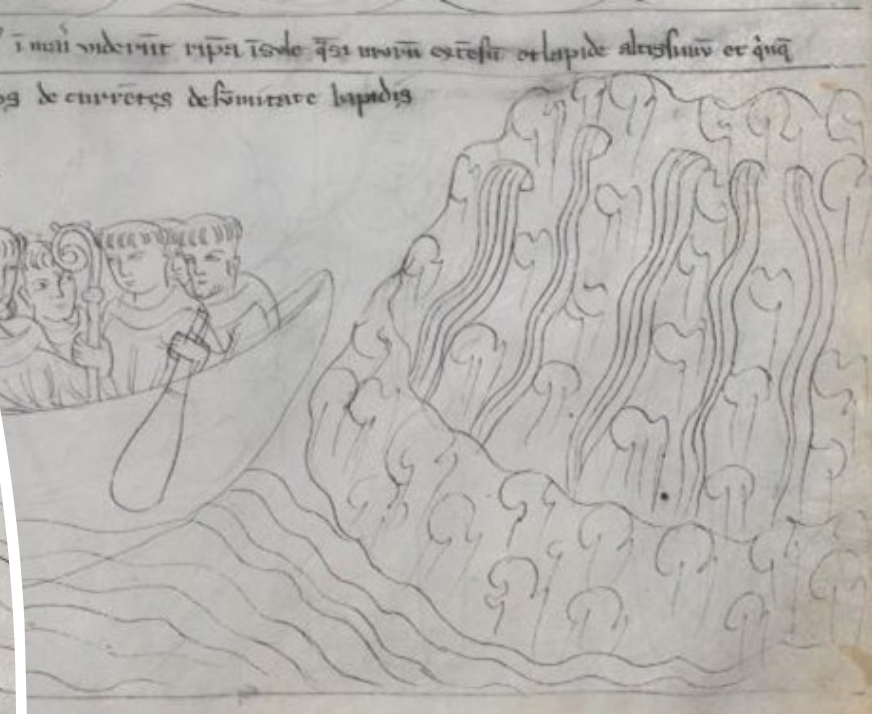 ī mari viderūt ripā īsule q̄si murū extēsū et lapide altissimū et q̇nq̄
de currētes de sūmitate lapidis